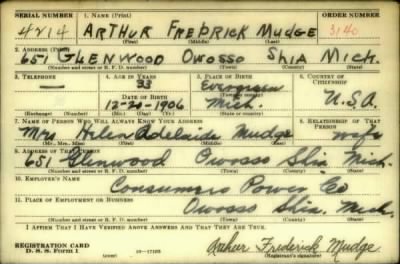 SERIAL NUMBER 1. NAME (Print) ORDER NUMBER
4214 ARTHUR FREDRICK MUDGE 3140
(First) (Middle) (Last)
2. ADDRESS (Print)
651 GLENWOOD OWOSSO SHIA MICH.
(Number and street or R. F. D. number) (Town) (County) (State)
3. TELEPHONE 4. AGE IN YEARS 5. PLACE OF BIRTH 6. COUNTRY OF CITIZENSHIP
— 33 Evergreen
DATE OF BIRTH (Town or county)
12-20-1906 Mich. U.S.A.
(Exchange) (Number) (Mo.) (Day) (Yr.) (State or country)
7. NAME OF PERSON WHO WILL ALWAYS KNOW YOUR ADDRESS 8. RELATIONSHIP OF THAT PERSON
Mrs Helen Adelaide Mudge wife
(Mr., Mrs., Miss) (First) (Middle) (Last)
9. ADDRESS OF THAT PERSON
651 Glenwood Owosso Shia Mich.
(Number and street or R. F. D. number) (Town) (County) (State)
10. EMPLOYER'S NAME
Consumers Power Co
11. PLACE OF EMPLOYMENT OR BUSINESS
Owosso Shia. Mich.
(Number and street or R. F. D. number) (Town) (County) (State)
I AFFIRM THAT I HAVE VERIFIED ABOVE ANSWERS AND THAT THEY ARE TRUE.
REGISTRATION CARD
D. S. S. Form 1 (over) Arthur Frederick Mudge.
(Registrant's signature)